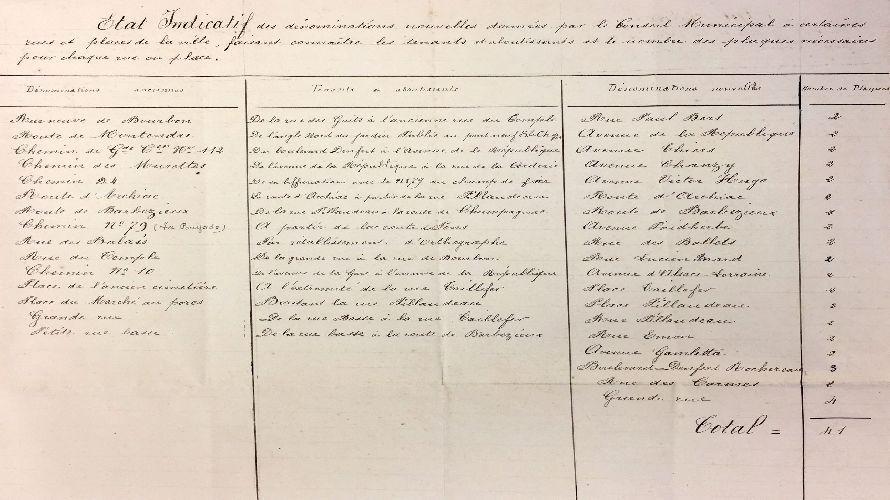 Etat Indicatif des dénominations nouvelles données par le Conseil Municipal à certaines
rues et places de la ville, faisant connaître les tenants et aboutissants et le nombre des plaques nécessaires
pour chaque rue ou place.
Dénominations anciennes Tenants et aboutissants Dénominations nouvelles Nombre de Plaques
Rue neuve de Bourbon De la rue des Guits à l'ancienne rue du Temple Rue Paul Bert 2
Route de Montendre De l'angle Nord du jardin Public au pont neuf Avenue de la République 2
Chemin de Gde Con No 142 Du boulevard Denfert à l'Avenue de la République Avenue Thiers 2
Chemin des Murettes De l'avenue de la République à la rue de la Avenue Chanzy 2
Chemin D.4 De sa bifurcation avec le No 79 au champ de foire Avenue Victor Hugo 2
Route d'Archiac La route d'Archiac à partir de la rue Pillaudeau Route d'Archiac 2
Route de Barbezieux De la rue Pillaudeau à la route de Champagnac Route de Barbezieux 2
Chemin No 79 A partir de la route de Pons Avenue Faidherbe 2
Rue des Balais Par rétablissement d'Orthographe Rue des Ballets 2
Rue du Temple De la grande rue à la rue de Bourbon Rue Lucien 2
Chemin No 10 De l'avenue de la Gare à l'avenue de la République Avenue d'Alsace-Lorraine 2
Place de l'ancien cimetière A l'extrémité de la rue Taillefer Place Taillefer 2
Place du Marché au porcs Bordant la rue Pillaudeau Place Pillaudeau 2
Grande rue De la rue Basse à la rue Taillefer Rue Pillaudeau 2
Petite rue basse De la rue basse à la route de Barbezieux Rue 2
Avenue Gambetta 2
Boulevard Denfert Rochereau 3
Rue des Carmes 2
Grande rue 4
Total = 41